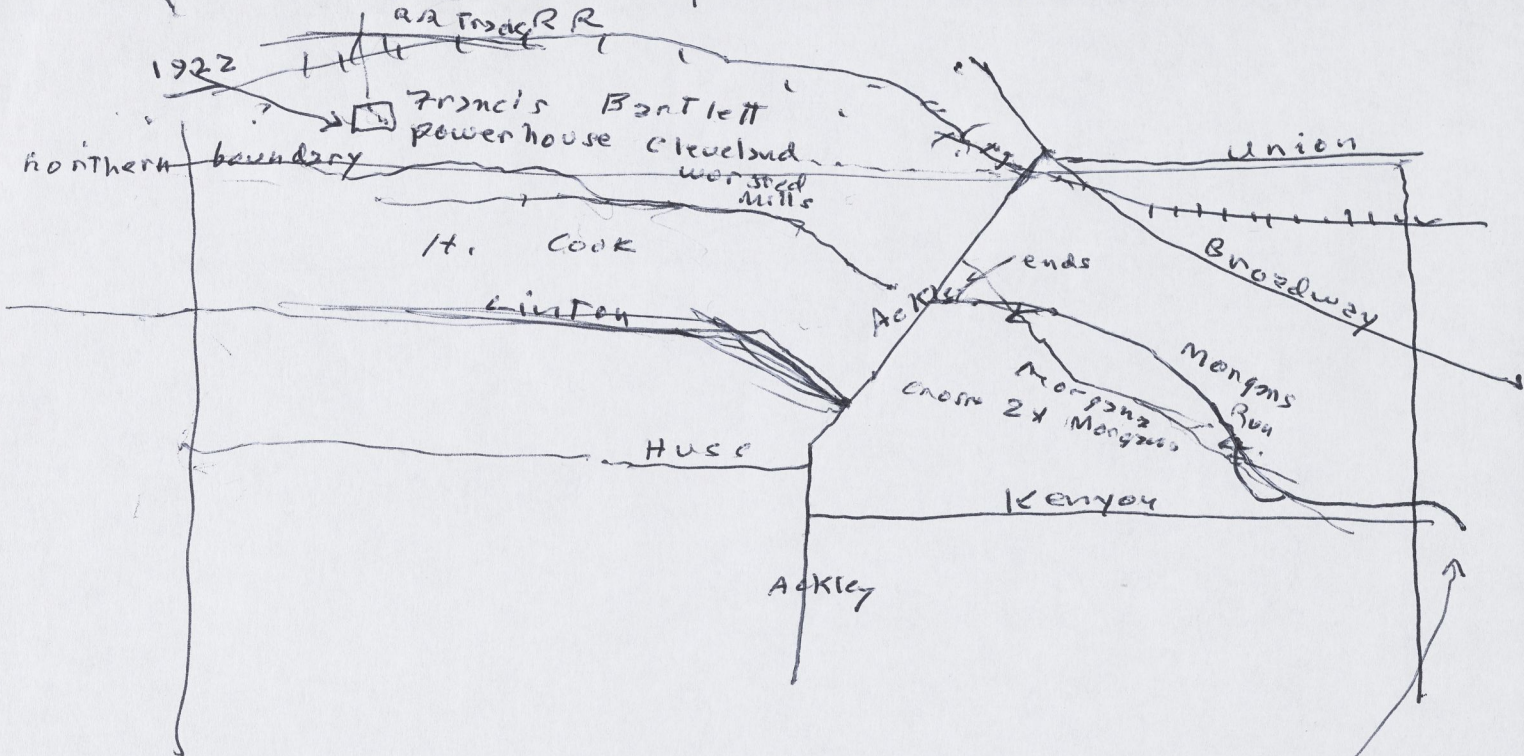 RR Track RR
1922
?
Francis Bartlett
powerhouse Cleveland
worsted
Mills
northern boundary
Union
H. Cook
ends
Broadway
Linton
Morgans
Run
Morgans
cross 2x Morgans
Huss
Kenyon
Ackley